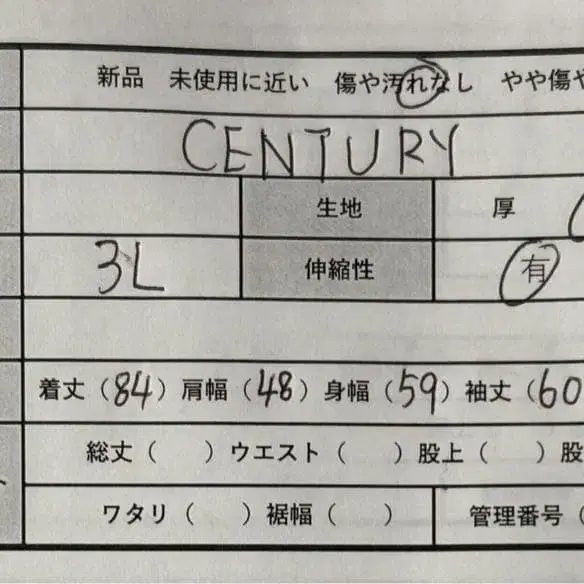 新品 未使用に近い 傷や汚れなし やや傷や
CENTURY
生地 厚
3L 伸縮性 有
着丈（84）肩幅（48）身幅（59）袖丈（60
総丈（ ）ウエスト（ ）股上（ ）股
ワタリ（ ）裾幅（ ） 管理番号（